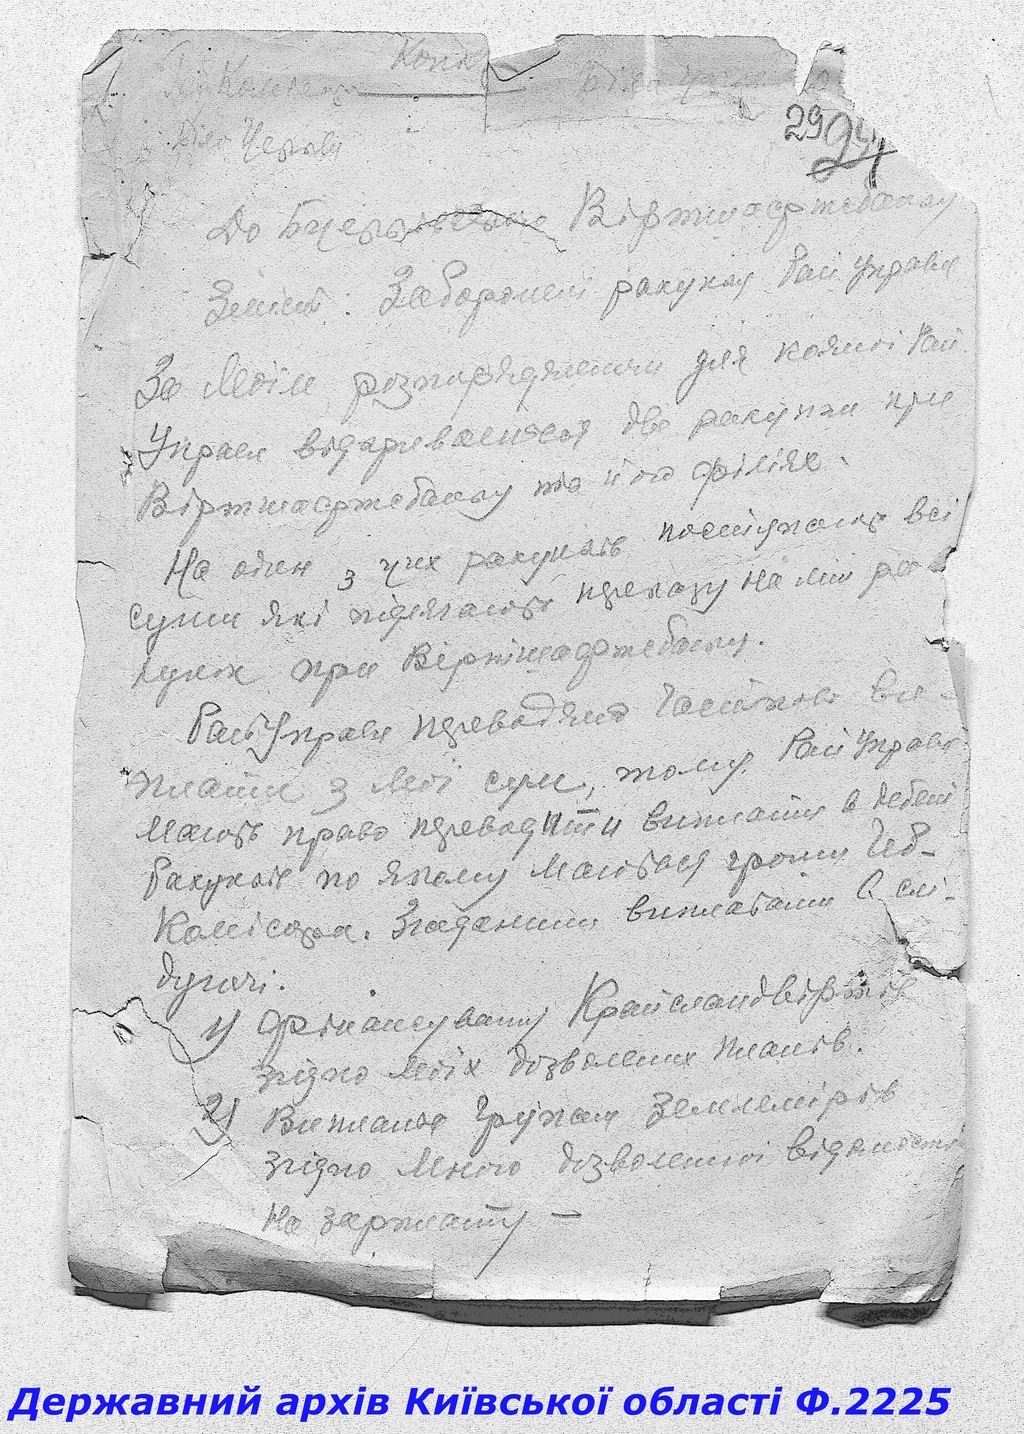 Копія
Біла Церква
29
До Віртшафтсбанку
Зміст: Заборонені рахунки Рай Управ
За моїм розпорядженям для кожної Рай
Управи відкривається два рахунки при
Віртшафтсбанку та його філіях.
На один з цих рахунків поступають всі
суми які підлягають переказу на мій ра-
хунок при Віртшафтсбанку.
РайУправи переводять частково ви-
плати з моїх сум, тому РайУправи
мають право переводити виплати в дебет
рахунків по якому маються гроші Геб-
Комісара. Згаданими виплатами є слі-
дуючі.
1) Фінансування Крайсландвіртів
згідно моїх дозволених планів.
2) Виплата Групам Землемірів
згідно мною дозволеної відомості
на зарплату —
Державний архів Київської області Ф.2225